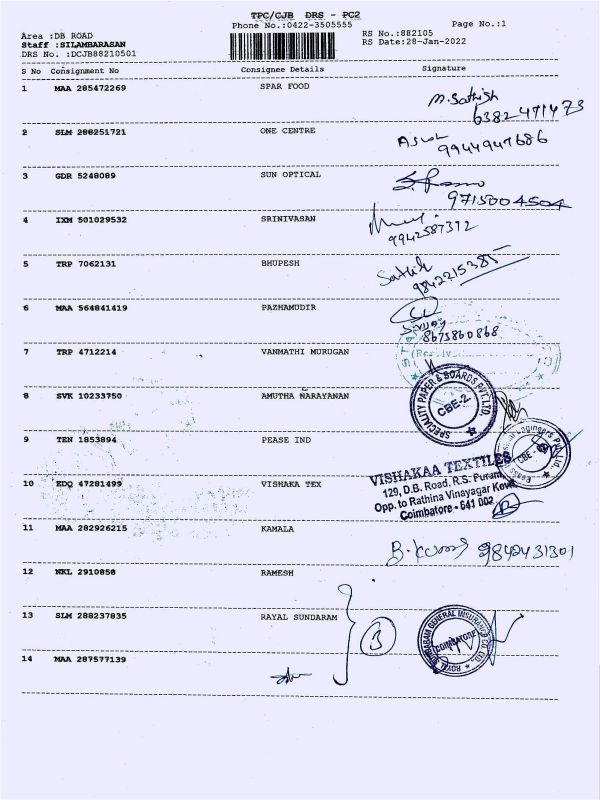 TPC/CJB DRS - PC2
Phone No.:0422-3505555
Page No.:1
Area :DB ROAD
RS No.:882105
Staff :SILAMBARASAN
RS Date:28-Jan-2022
DRS No. :DCJB88210501
S No Consignment No Consignee Details Signature
1 MAA 285472269 SPAR FOOD
M. Sathish
6382471473
2 SLM 288251721 ONE CENTRE
9944947686
3 GDR 5248089 SUN OPTICAL
9715004504
4 IXM 501029532 SRINIVASAN
9942587372
5 TRP 7062131 BHUPESH
Sathik
9842215385
6 MAA 564841419 PAZHAMUDIR
8675860868
7 TRP 4712214 VANMATHI MURUGAN
8 SVK 10233750 AMUTHA NARAYANAN
SPECIALITY PAPER & BOARDS PVT.LTD.
CBE-2.
9 TEN 1853894 PEASE IND
Engineers Pvt. Ltd.
CBE -
10 EDQ 47281499 VISHAKA TEX
VISHAKAA TEXTILES
129, D.B. Road, R.S. Puram,
Opp. to Rathina Vinayagar Kovil
Coimbatore - 641 002
11 MAA 282926215 KAMALA
9842431301
12 NKL 2910858 RAMESH
13 SLM 288237835 RAYAL SUNDARAM
3
ROYAL SUNDARAM GENERAL INSURANCE CO. LTD.
COIMBATORE
14 MAA 287577139